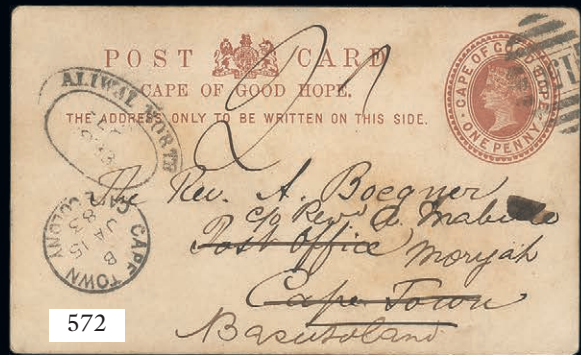 POST CARD
CAPE OF GOOD HOPE.
THE ADDRESS ONLY TO BE WRITTEN ON THIS SIDE.
CAPE OF GOOD HOPE
ONE PENNY
ALIWAL NORTH
CAPE TOWN
COLONY
B
JA 15
83
The Rev. A. Boegner
c/o Rev. A. Mabille
Post Office Moryah
Cape Town
Basutoland
572